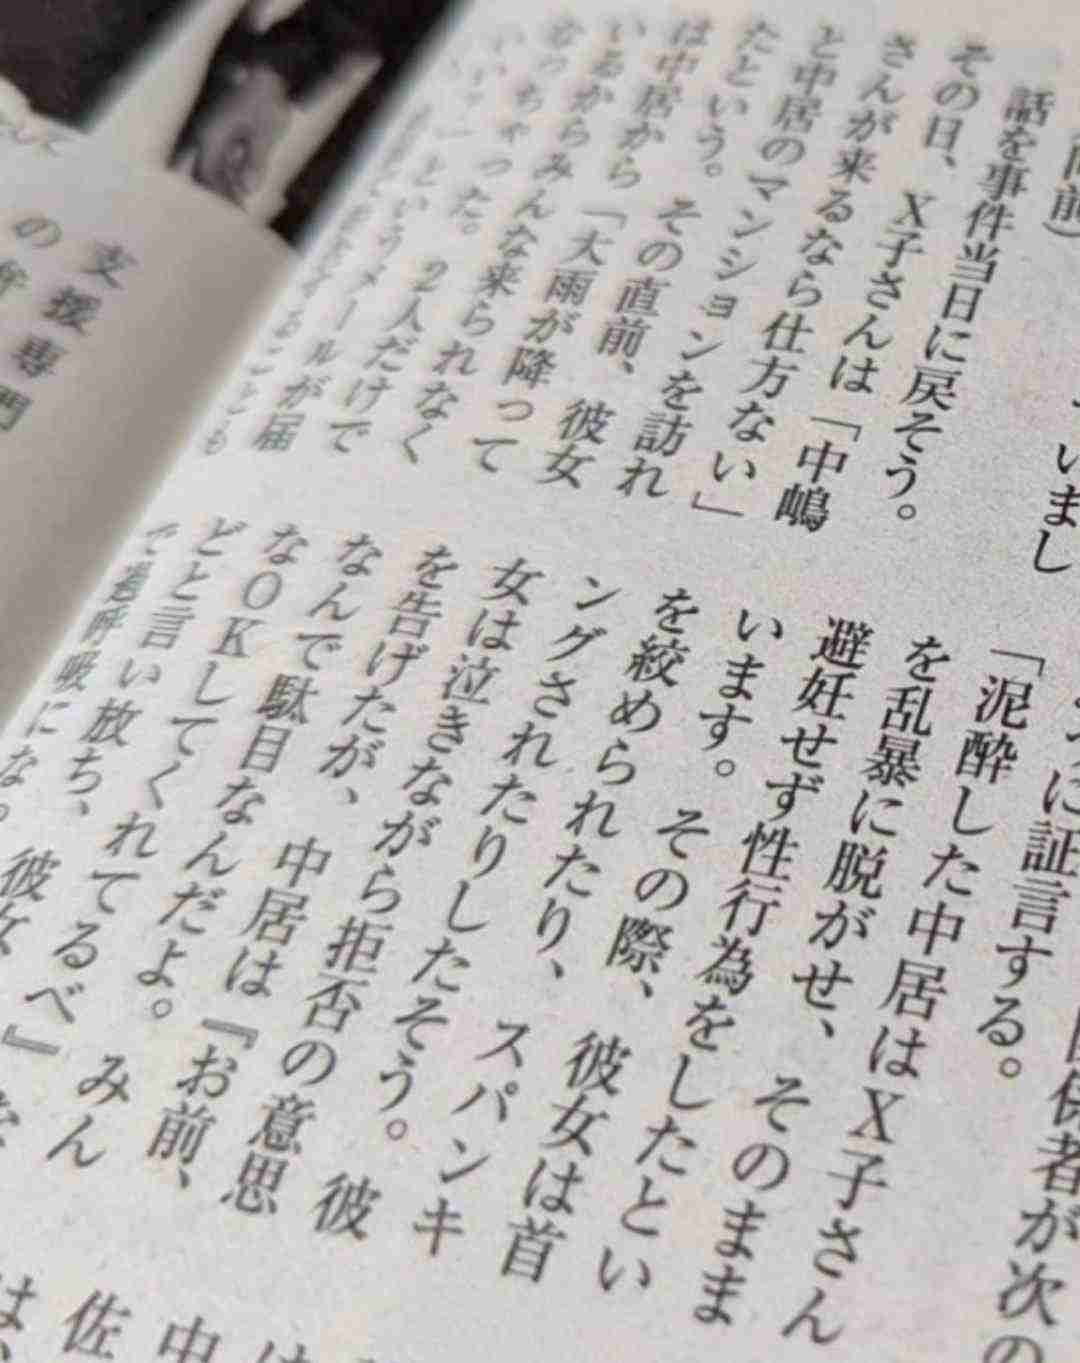 いまし
話を事件当日に戻そう。
その日、X子さんは「中嶋
さんが来るなら仕方ない」
と中居のマンションを訪れ
たという。その直前、彼女
は中居から「大雨が降って
いるからみんな来られなく
なっちゃった。2人だけで
いい?」というメールが届
に証言する。
「泥酔した中居はX子さん
を乱暴に脱がせ、そのまま
避妊せず性行為をしたとい
います。その際、彼女は首
を絞められたり、スパンキ
ングされたりしたそう。彼
女は泣きながら拒否の意思
を告げたが、中居は『お前、
なんで駄目なんだよ。みん
なOKしてくれてるべ』
どと言い放ち、彼女
で過呼吸にな
係者が次の
支援専門
の
佐
中
は